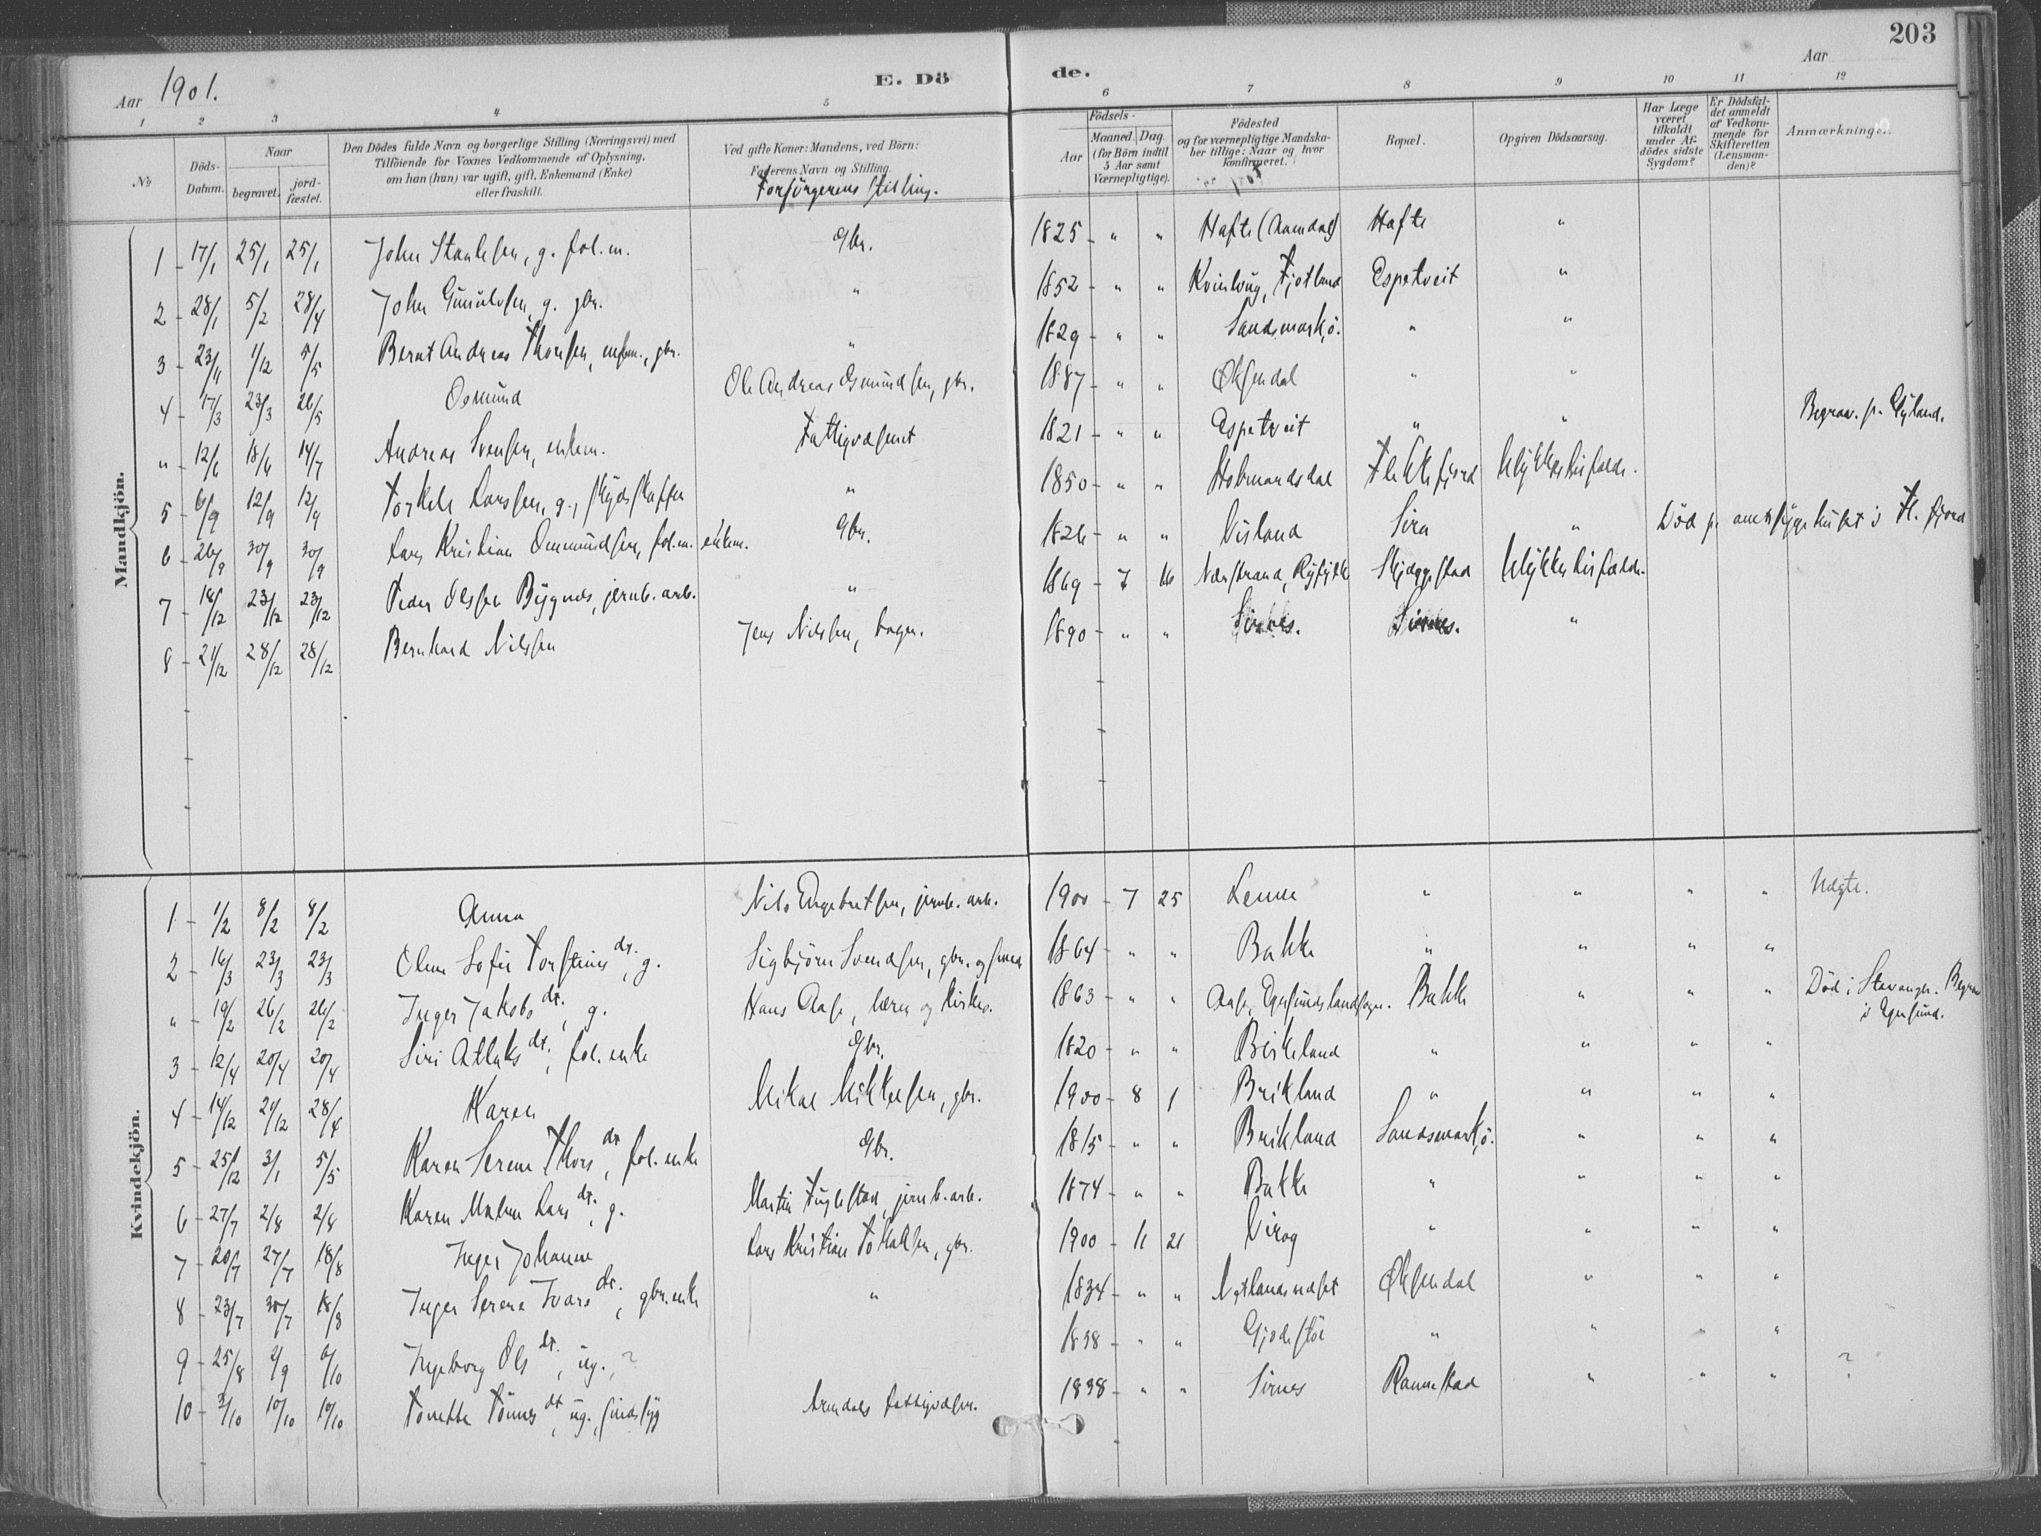 203
Aar 1901.
E. Dö
de.
Aar
1 2 3 4 5 6 7 8 9 10 11 12
No
Döds-Datum.
Naar
begravet.
jord-fæstet.
Den Dödes fulde Navn og borgerlige Stilling (Næringsvei) med
Tilföiende for Voxnes Vedkommende af Oplysning,
om han (hun) var ugift, gift, Enkemand (Enke)
eller fraskilt.
Ved gifte Koner: Mandens, ved Börn:
Faderens Navn og Stilling.
Forsørgerens stilling.
Födsels-
Aar
Maaned. Dag.
(for Börn indtil
5 Aar samt
Værnepligtige).
Födested
og for værnepligtige Mandska-
ber tillige: Naar og hvor
konfirmeret.
Bopæl.
Opgiven Dödsaarsag.
Har Læge
været
tilkaldt
under Af-
dödes sidste
Sygdom?
Er Dödsfal-
det anmeldt
af Vedkom-
mende for
Skifteretten
(Lensman-
den)?
Anmærkninger.
Mandkjön.
1 17/1 25/1 25/1 John g. fol. m. Gbr. 1825 " " Hafte Hafte "
2 28/1 5/2 28/4 John Gunulvsen, g. gbr. " 1852 " " Fjotland Espetveit "
3 23/11 1/12 5/5 Bernt Andreas Thorsen, enkm., gbr. " 1829 " " Sandsmark, ö. " "
4 17/3 23/3 26/5 Osmund Ole Andreas Osmundsen, gbr. 1887 " " Öksendal " "
" 12/6 18/6 14/7 Andreas Svensen, enkem. Fattigvæsenet 1821 " " Espetveit " " Begrav. p. Gyland.
5 6/9 12/9 12/9 Torkel Larssen, g., skydsskaffer " 1850 " " Flekkefjord Ulykkestilfælde.
6 26/9 30/9 30/9 Lars Kristian Ommundsen, fol. m. enkem. Gbr. 1826 " " Sira " Död p. amtssygehuset i Fl. fjord
7 18/12 23/12 23/12 Peder Olsen Bygnes, jernb. arb. " 1869 7 16 Nærstrand, Ryfylke Skjeggestad Ulykkestilfælde.
8 21/12 28/12 28/12 Bernhard Nilsen Jens Nilsen, bager. 1890 " " Sirnes. Sirnes. "
Kvindekjön.
1 1/2 8/2 8/2 Anna Nils Engebretsen, jernb. arb. 1900 7 25 " " " " Uægte.
2 16/3 23/3 23/3 Olene Sofie Torstensdr., g. Sigbjörn Svendsen, gbr. og smed 1864 " " Bakke " " " "
" 19/2 26/2 26/2 Inger Jakobsdr., g. Hans Aase, lærer og kirkes. 1863 " " Aase, Egersunds landsogn. Bakke " " " Död i Stavanger. Begrav
i Egersund.
3 12/4 20/4 20/4 Siri Atlaksdr., fol. enke Gbr. 1820 " " Birkeland " " " "
4 14/12 21/12 28/4 Karen Mikal Mikkelsen, gbr. 1900 8 1 Brikland " " " "
5 25/12 3/1 5/5 Karen Serene Thorsdr., fol. enke Gbr. 1815 " " Brikland Sandsmark, ö. " " "
6 27/7 2/8 2/8 Karen Malene Larsdr., g. Martin Fuglestad, jernb. arb. 1874 " " Bakke " " " "
7 20/7 27/7 18/8 Inger Johanne Lars Kristian gbr. 1900 11 21 Virag " " " "
8 23/7 30/7 18/8 Inger Serene Ivarsdr., gbr. enke " 1834 " " Netlandsneset Öksendal " " "
9 25/8 2/9 6/10 Ingeborg Olsdr., ug. ? 1838 " " " " " "
10 3/10 10/10 10/10 Tonette Tönnesdr. ug., sindssyg Arendals fattigvæsen. 1838 " " Sirnes Rannestad " " " ?